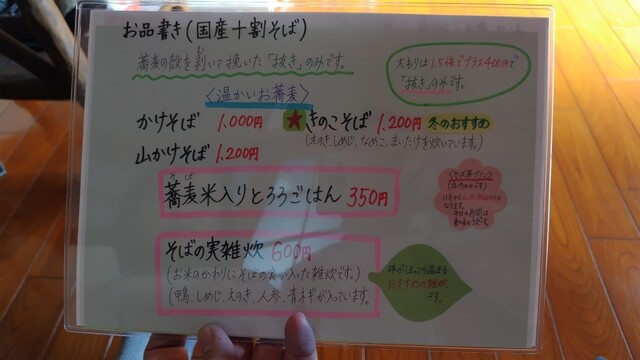 お品書き(国産十割そば)
蕎麦の殻を剥いて挽いた「抜き」のみです。
大もりは1.5倍でプラス400円で
「抜き」のみです。
<温かいお蕎麦>
かけそば 1,000円
★きのこそば 1,200円 冬のおすすめ
(えのき、しめじ、なめこ、まいたけを炊いています。)
山かけそば 1,200円
そば
蕎麦米入りとろろごはん 350円
そばの実雑炊 600円
(お米のかわりにそばの実が入った雑炊です。)
(鴨、しめじ、えのき、人参、青ネギが入っています。
体がほっこり温まる
おすすめの雑炊
です。